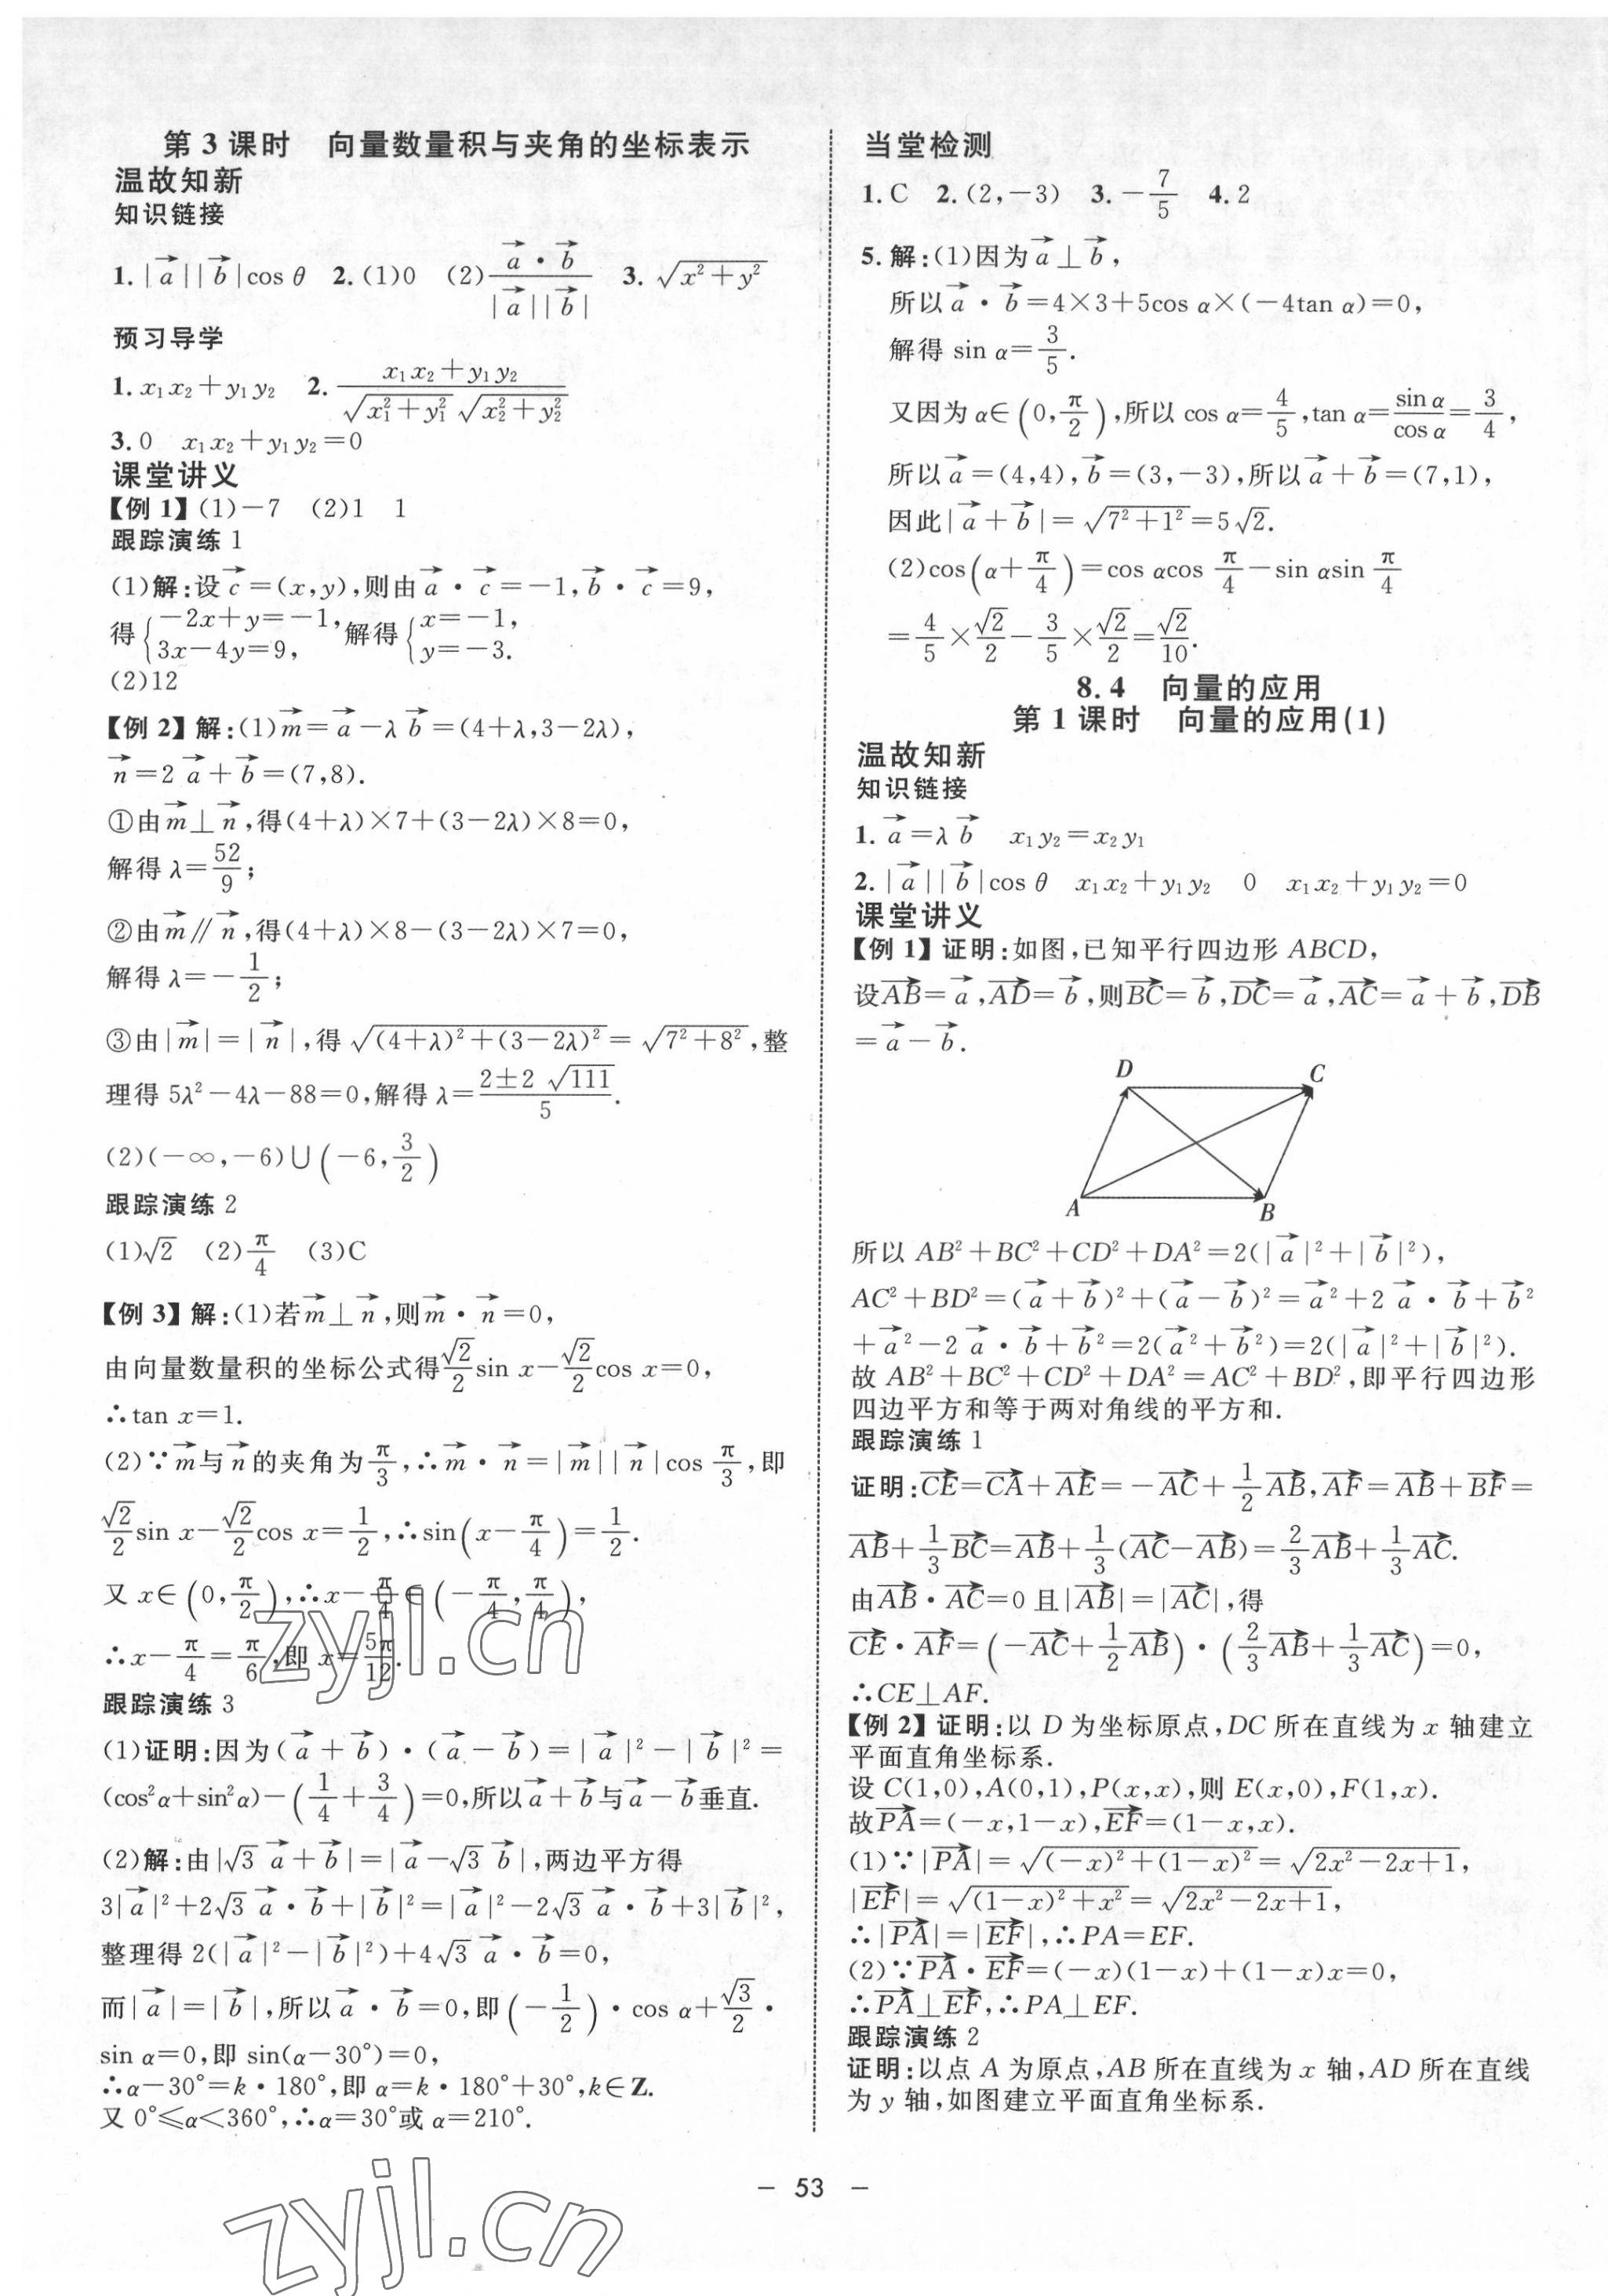 第 3 课时　向量数量积与夹角的坐标表示
温故知新
知识链接
1. |$\vec{a}$||$\vec{b}$|cos θ　2. (1)0　(2)$\frac{\vec{a}·\vec{b}}{|\vec{a}||\vec{b}|}$　3. $\sqrt{x^2+y^2}$
预习导学
1. $x_1x_2+y_1y_2$　2. $\frac{x_1x_2+y_1y_2}{\sqrt{x_1^2+y_1^2}\sqrt{x_2^2+y_2^2}}$
3. 0　$x_1x_2+y_1y_2=0$
课堂讲义
【例 1】(1)−7　(2)1　1
跟踪演练 1
(1)解:设$\vec{c}$=(x,y),则由$\vec{a}$·$\vec{c}$=−1,$\vec{b}$·$\vec{c}$=9,
得$\begin{cases}-2x+y=-1,\\3x-4y=9,\end{cases}$解得$\begin{cases}x=-1,\\y=-3.\end{cases}$
(2)12
【例 2】解:(1)$\vec{m}$=$\vec{a}$−λ$\vec{b}$=(4+λ,3−2λ),
$\vec{n}$=2$\vec{a}$+$\vec{b}$=(7,8).
①由$\vec{m}$⊥$\vec{n}$,得(4+λ)×7+(3−2λ)×8=0,
解得 λ=$\frac{52}{9}$;
②由$\vec{m}$∥$\vec{n}$,得(4+λ)×8−(3−2λ)×7=0,
解得 λ=−$\frac{1}{2}$;
③由|$\vec{m}$|=|$\vec{n}$|,得$\sqrt{(4+λ)^2+(3-2λ)^2}$=$\sqrt{7^2+8^2}$,整
理得 5λ²−4λ−88=0,解得 λ=$\frac{2±2\sqrt{111}}{5}$.
(2)(−∞,−6)∪$\left(-6,\frac{3}{2}\right)$
跟踪演练 2
(1)$\sqrt{2}$　(2)$\frac{π}{4}$　(3)C
【例 3】解:(1)若$\vec{m}$⊥$\vec{n}$,则$\vec{m}$·$\vec{n}$=0,
由向量数量积的坐标公式得$\frac{\sqrt{2}}{2}$sin x−$\frac{\sqrt{2}}{2}$cos x=0,
∴tan x=1.
(2)∵$\vec{m}$与$\vec{n}$的夹角为$\frac{π}{3}$,∴$\vec{m}$·$\vec{n}$=|$\vec{m}$||$\vec{n}$|cos $\frac{π}{3}$,即
$\frac{\sqrt{2}}{2}$sin x−$\frac{\sqrt{2}}{2}$cos x=$\frac{1}{2}$,∴sin$\left(x-\frac{π}{4}\right)$=$\frac{1}{2}$.
又 x∈$\left(0,\frac{π}{2}\right)$,∴x−$\frac{π}{4}$∈$\left(-\frac{π}{4},\frac{π}{4}\right)$,
∴x−$\frac{π}{4}$=$\frac{π}{6}$,即 x=$\frac{5π}{12}$.
跟踪演练 3
(1)证明:因为($\vec{a}$+$\vec{b}$)·($\vec{a}$−$\vec{b}$)=|$\vec{a}$|²−|$\vec{b}$|²=
(cos²α+sin²α)−$\left(\frac{1}{4}+\frac{3}{4}\right)$=0,所以$\vec{a}$+$\vec{b}$与$\vec{a}$−$\vec{b}$垂直.
(2)解:由|$\sqrt{3}$$\vec{a}$+$\vec{b}$|=|$\vec{a}$−$\sqrt{3}$$\vec{b}$|,两边平方得
3|$\vec{a}$|²+2$\sqrt{3}$$\vec{a}$·$\vec{b}$+|$\vec{b}$|²=|$\vec{a}$|²−2$\sqrt{3}$$\vec{a}$·$\vec{b}$+3|$\vec{b}$|²,
整理得 2(|$\vec{a}$|²−|$\vec{b}$|²)+4$\sqrt{3}$$\vec{a}$·$\vec{b}$=0,
而|$\vec{a}$|=|$\vec{b}$|,所以$\vec{a}$·$\vec{b}$=0,即$\left(-\frac{1}{2}\right)$·cos α+$\frac{\sqrt{3}}{2}$·
sin α=0,即 sin(α−30°)=0,
∴α−30°=k·180°,即 α=k·180°+30°,k∈Z.
又 0°≤α<360°,∴α=30°或 α=210°.
当堂检测
1. C　2. (2,−3)　3. −$\frac{7}{5}$　4. 2
5. 解:(1)因为$\vec{a}$⊥$\vec{b}$,
所以$\vec{a}$·$\vec{b}$=4×3+5cos α×(−4tan α)=0,
解得 sin α=$\frac{3}{5}$.
又因为 α∈$\left(0,\frac{π}{2}\right)$,所以 cos α=$\frac{4}{5}$,tan α=$\frac{\sin α}{\cos α}$=$\frac{3}{4}$,
所以$\vec{a}$=(4,4),$\vec{b}$=(3,−3),所以$\vec{a}$+$\vec{b}$=(7,1),
因此|$\vec{a}$+$\vec{b}$|=$\sqrt{7^2+1^2}$=5$\sqrt{2}$.
(2)cos$\left(α+\frac{π}{4}\right)$=cos αcos $\frac{π}{4}$−sin αsin $\frac{π}{4}$
=$\frac{4}{5}$×$\frac{\sqrt{2}}{2}$−$\frac{3}{5}$×$\frac{\sqrt{2}}{2}$=$\frac{\sqrt{2}}{10}$.
8.4　向量的应用
第 1 课时　向量的应用(1)
温故知新
知识链接
1. $\vec{a}$=λ$\vec{b}$　$x_1y_2=x_2y_1$
2. |$\vec{a}$||$\vec{b}$|cos θ　$x_1x_2+y_1y_2$　0　$x_1x_2+y_1y_2=0$
课堂讲义
【例 1】证明:如图,已知平行四边形 ABCD,
设$\vec{AB}$=$\vec{a}$,$\vec{AD}$=$\vec{b}$,则$\vec{BC}$=$\vec{b}$,$\vec{DC}$=$\vec{a}$,$\vec{AC}$=$\vec{a}$+$\vec{b}$,$\vec{DB}$
=$\vec{a}$−$\vec{b}$.
D　C
A　B
所以 AB²+BC²+CD²+DA²=2(|$\vec{a}$|²+|$\vec{b}$|²),
AC²+BD²=($\vec{a}$+$\vec{b}$)²+($\vec{a}$−$\vec{b}$)²=$\vec{a}$²+2$\vec{a}$·$\vec{b}$+$\vec{b}$²
+$\vec{a}$²−2$\vec{a}$·$\vec{b}$+$\vec{b}$²=2($\vec{a}$²+$\vec{b}$²)=2(|$\vec{a}$|²+|$\vec{b}$|²).
故 AB²+BC²+CD²+DA²=AC²+BD²,即平行四边形
四边平方和等于两对角线的平方和.
跟踪演练 1
证明:$\vec{CE}$=$\vec{CA}$+$\vec{AE}$=−$\vec{AC}$+$\frac{1}{2}$$\vec{AB}$,$\vec{AF}$=$\vec{AB}$+$\vec{BF}$=
$\vec{AB}$+$\frac{1}{3}$$\vec{BC}$=$\vec{AB}$+$\frac{1}{3}$($\vec{AC}$−$\vec{AB}$)=$\frac{2}{3}$$\vec{AB}$+$\frac{1}{3}$$\vec{AC}$.
由$\vec{AB}$·$\vec{AC}$=0 且|$\vec{AB}$|=|$\vec{AC}$|,得
$\vec{CE}$·$\vec{AF}$=$\left(-\vec{AC}+\frac{1}{2}\vec{AB}\right)$·$\left(\frac{2}{3}\vec{AB}+\frac{1}{3}\vec{AC}\right)$=0,
∴CE⊥AF.
【例 2】证明:以 D 为坐标原点,DC 所在直线为 x 轴建立
平面直角坐标系.
设 C(1,0),A(0,1),P(x,x),则 E(x,0),F(1,x).
故$\vec{PA}$=(−x,1−x),$\vec{EF}$=(1−x,x).
(1)∵|$\vec{PA}$|=$\sqrt{(-x)^2+(1-x)^2}$=$\sqrt{2x^2-2x+1}$,
|$\vec{EF}$|=$\sqrt{(1-x)^2+x^2}$=$\sqrt{2x^2-2x+1}$,
∴|$\vec{PA}$|=|$\vec{EF}$|,∴PA=EF.
(2)∵$\vec{PA}$·$\vec{EF}$=(−x)(1−x)+(1−x)x=0,
∴$\vec{PA}$⊥$\vec{EF}$,∴PA⊥EF.
跟踪演练 2
证明:以点 A 为原点,AB 所在直线为 x 轴,AD 所在直线
为 y 轴,如图建立平面直角坐标系.
− 53 −
zyjl.cn
zyjl.cn